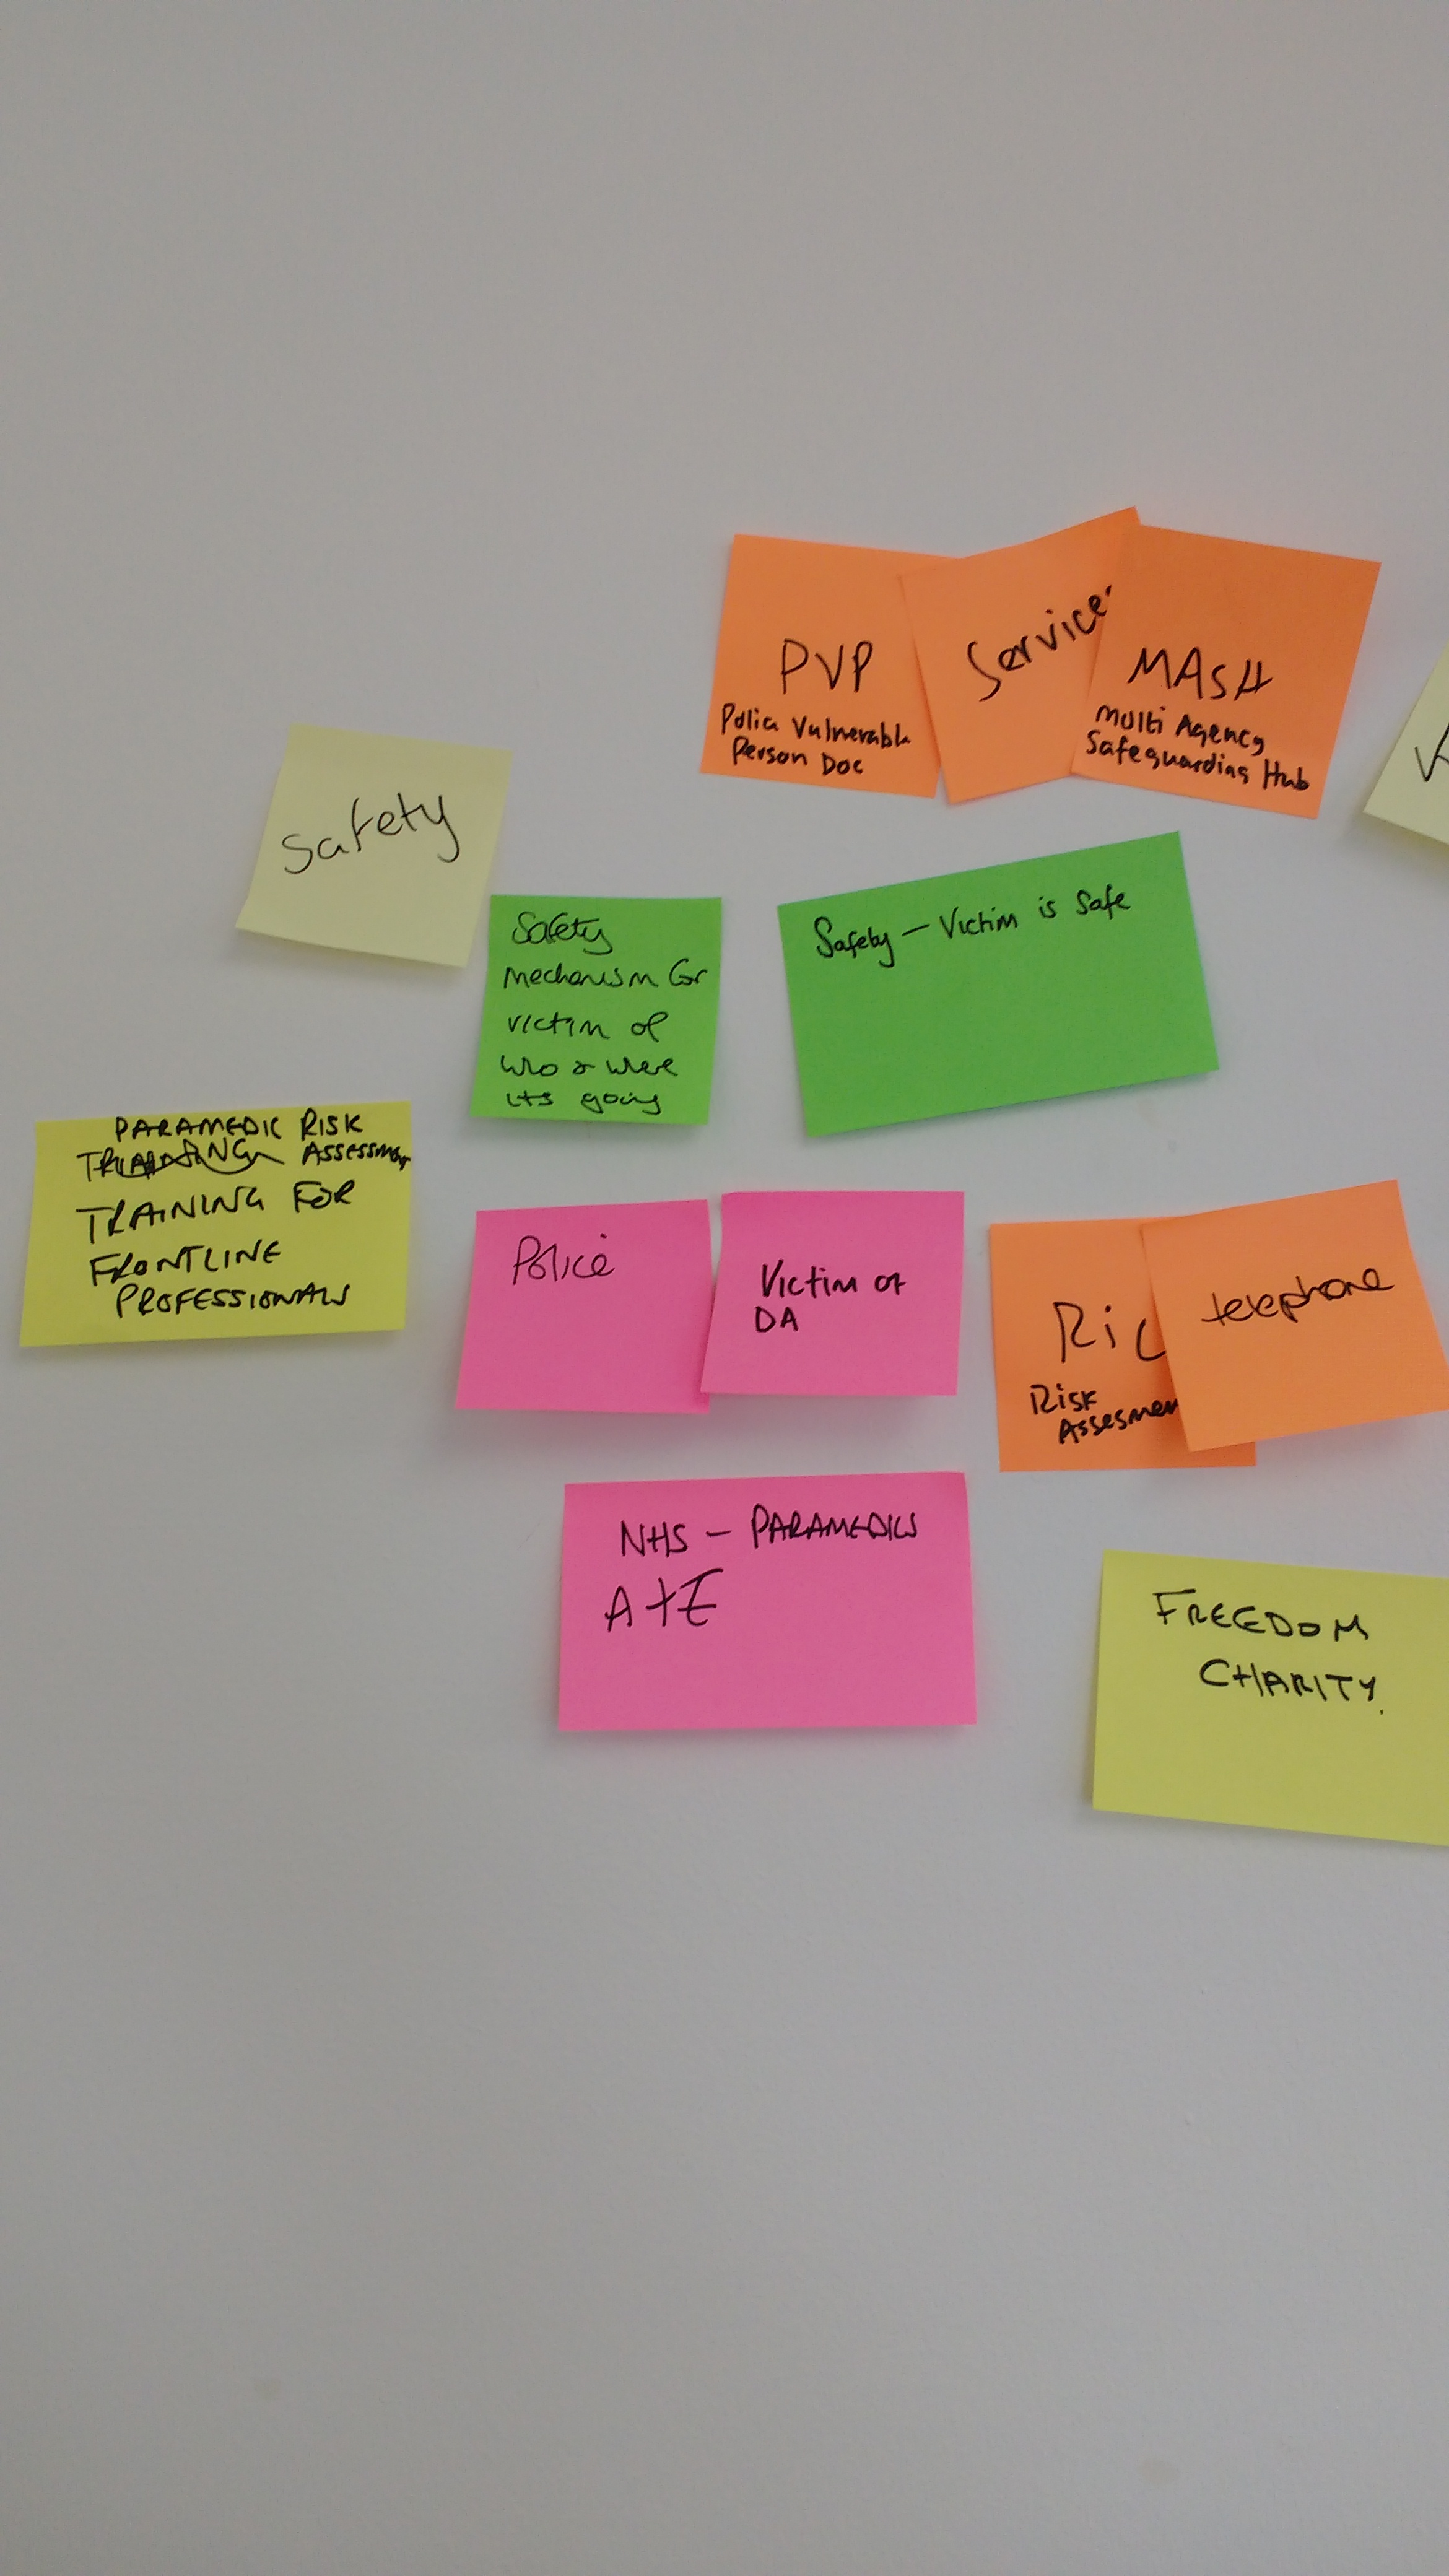 PVP
Police Vulnerable
Person Doc
Service
MASH
Multi Agency
Safeguarding Hub
Safety
Safety
mechanism for
victim of
who & where
its going
Safety - Victim is safe
PARAMEDIC RISK
ASSESSMENT
TRAINING FOR
FRONTLINE
PROFESSIONALS
Police
Victim of
DA
Ric
Risk
Assesmen
telephone
NHS - PARAMEDICS
A+E
FREEDOM
CHARITY.